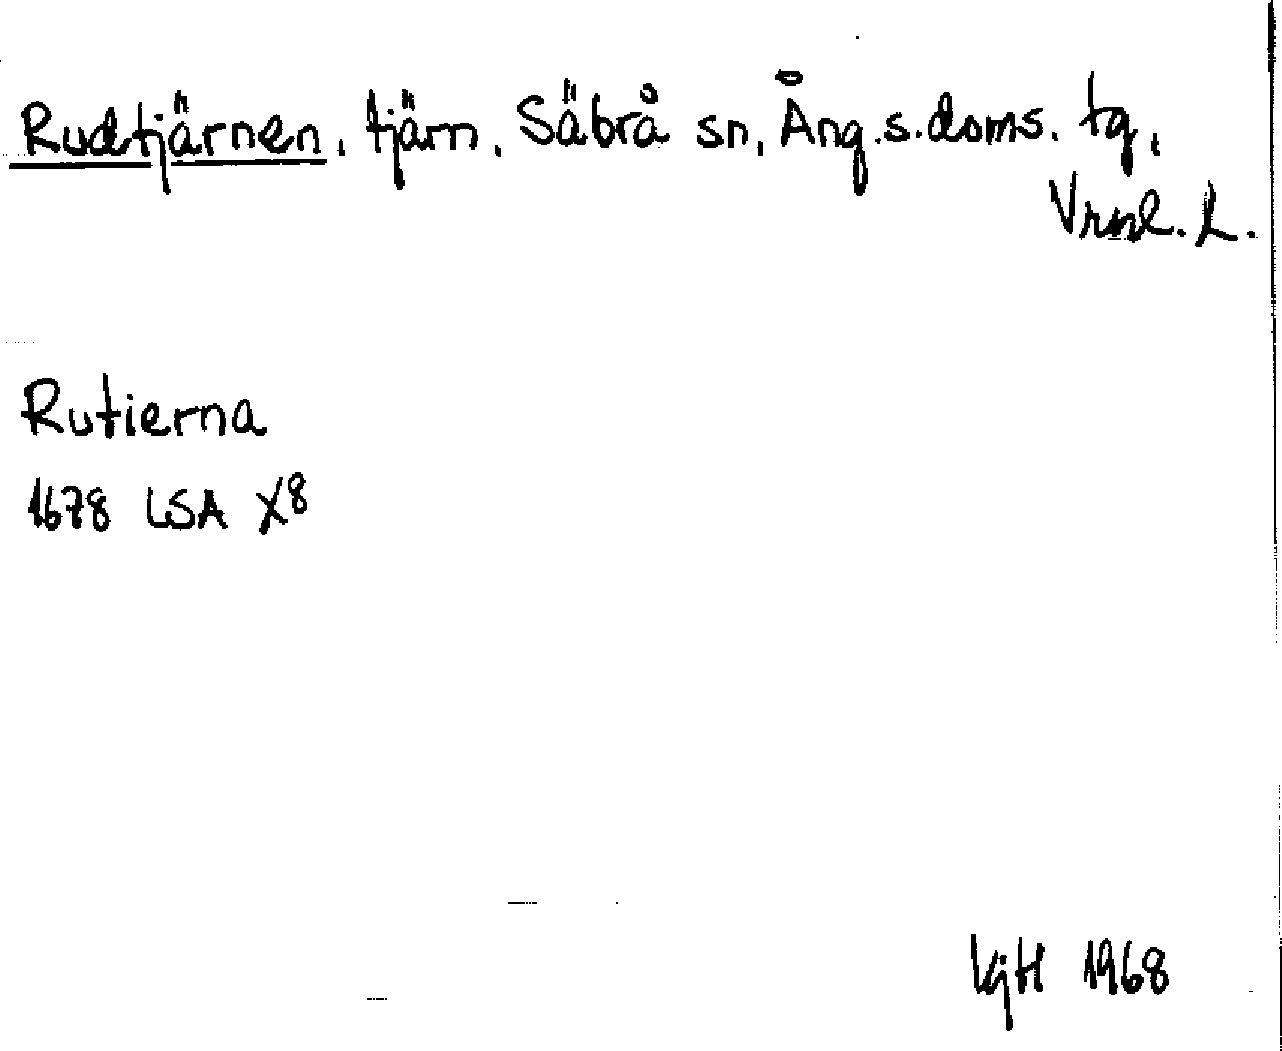 Rudtjärnen, tjärn, Säbrå sn, Ång.s.doms. tg,
Vrnl. L.
Rutierna
1678 LSA X8
KjH 1968